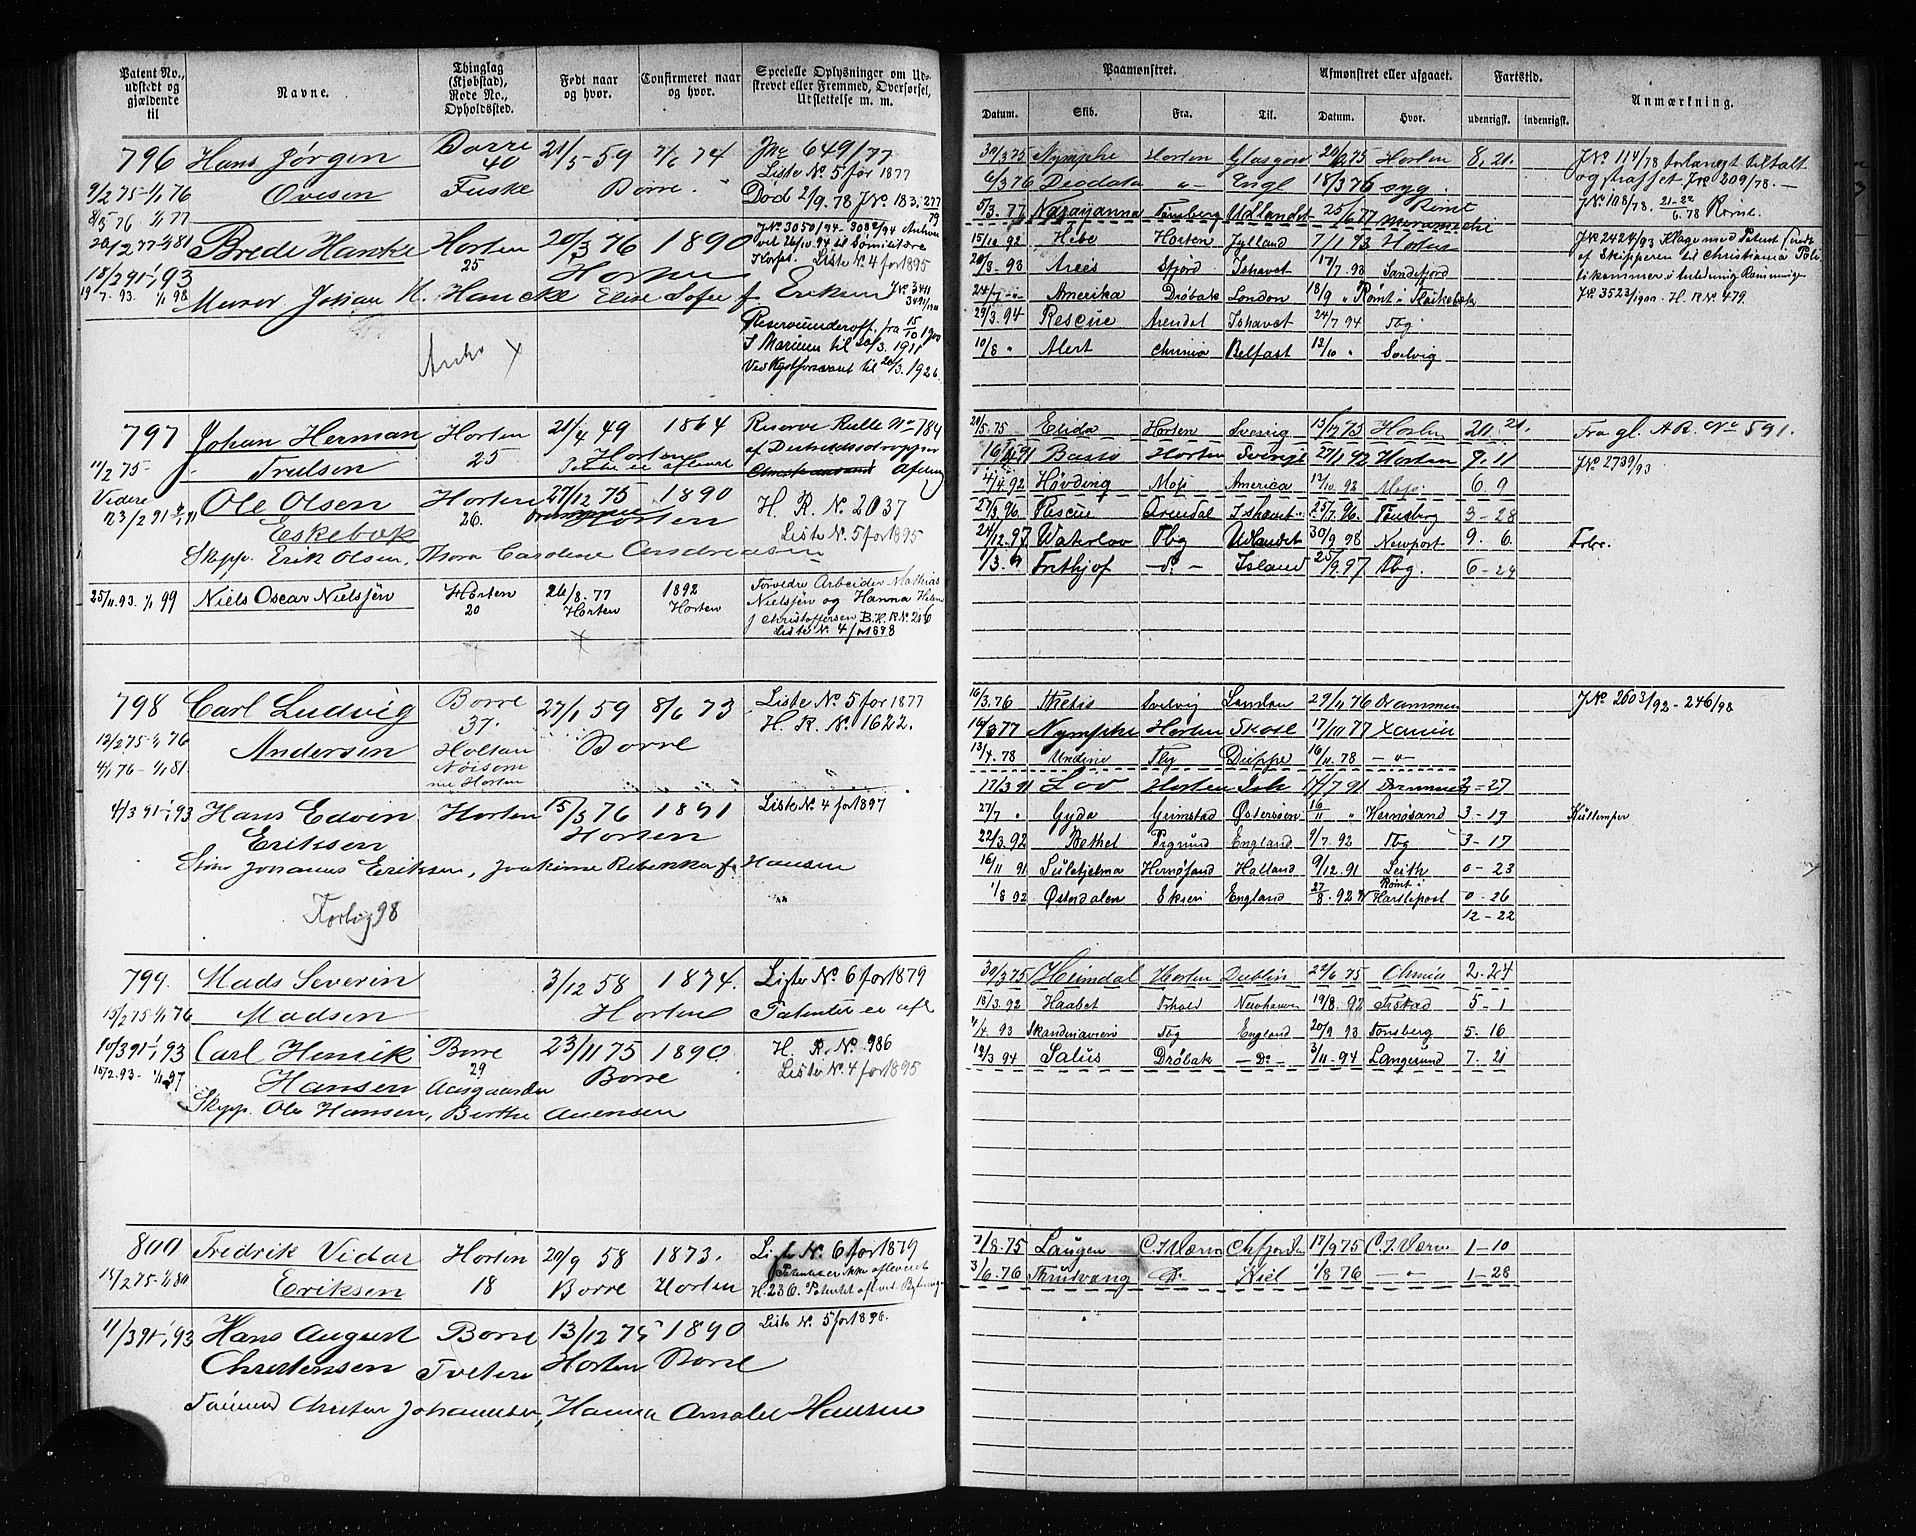 Patent No., udstedt og gjældende til
Navne.
Thinglag (Kjøbstad), Rode No., Opholdssted.
Født naar og hvor.
Confirmeret naar og hvor.
Specielle Oplysninger om Udskrevet eller Fremmed, Oversørsel, Udslettelse m. m.
Paamønstret.
Datum.
Skib.
Fra.
Til.
Afmønstret eller afgaaet.
Datum.
Hvor.
Fartstid.
udenrigsk.
indenrigsk.
Anmærkning.
796 Hans Jørgen Borre 21/5 59 7/6 74 JNo 649/77
40 Liste No. 5 for 1877
9/2 75-1/1 76 Ovesen Fuske Borre. Død 2/9. 78 JNo 183. 277/79
8/5 76 1/1 77
20/2 77-1/1 81 Brede Hancke Horten 20/3 76 1890
25 Liste No. 4 for 1895
18/2 91-1/1 93 Horten
19/7. 93. 1/1 98 Murer Johan H. Hancke Elise Sofie f Eriksen JNo 3411
Reserveunderoff. fra 15/10 1900
I Marinen til 20/3. 1911
Ved Kystforsvaret til 20/3. 1926
797 Johan Herman Horten 21/4 49 1864 Reserve Rulle No 784
11/2 75- Trulsen 25 Horten
Videre
23/2 91-1/1 91 Ole Olsen Horten 27/12 75 1890 H. R. No. 2037
Eskebæk 26. Horten Liste No. 5 for 1895
Skipp. Erik Olsen, Thora Caroline Andreasen
25/11. 93. 1/1 99 Niels Oscar Nielsen Horten 26/8. 77 1892 Forældre Arbeider Mathias
20 Horten Horten Nielsen og Hanna Helene
f Christoffersen B.H.R.No. 206
Liste No. 4 for 1898
798 Carl Ludvig Borre 27/1 59 8/6 73 Liste No. 5 for 1877
37. H. R. No. 1622.
13/2 75-1/1 76 Andersen Holtan Borre
4/1 76-1/1 81. Nøisom
Horten
4/3 91-1/1 93 Hans Edvin Horten 15/3 76 1891 Liste No. 4 for 1897
Eriksen Horten
Johannes Eriksen, Joakime Rebekka f. Hansen
98
799. Mads Severin 3/12 58 1874. Liste No. 6 for 1879
13/2 75-1/1 76 Madsen Horten Patentet er afl
10/3 91-1/1 93 Carl Henrik Borre 23/11 75 1890. H. R. No. 986
29
15/2. 93- 1/1 97 Hansen Aasgaarden Borre Liste No. 4 for 1895
Skipp. Ole Hansen, Berthe
800 Fredrik Vidar Horten 20/9 58 1873. Liste No. 6 for 1879
15/2 75-1/1 80 Eriksen 18 Borre Horten
11/3 91-1/1 93 Hans August Borre 13/12 75 1890 Liste No. 5 for 1896.
Christensen Tveten Horten Borre
Christian Johannesen, Hanna Amalie Hansen
30/3 75 Nymphe Horten Glasgow 20/8 75 Horten 8. 21.
JNo 114/78 forlangt tiltalt
6/3 76 Deodata " Engl 18/3 76 syg.
og straffet JNo 209/78.
5/3. 77 Narayanna Tønsberg Udlandet 25/6 77 Rømt
JNo 108/78. 21-22/6. 78 Rømt.
15/10 92 Hebe Horten Jylland 7/1 93 Horten
JNo 2424/93 Klage med Patent sendt
20/3. 93 Areis Sfjord Ishavet 17/7. 93 Sandefjord
af Skipperen til Christiania Poli
24/7 " Amerika Drøbak London 18/9 " Rømt i
JNo 3523/1900. H. R. No. 479.
29/3. 94 Rescue Arendal Ishavet 24/7 94 Tbg.
10/8 " Alert Belfast 12/10 " Svelvig
20/5. 75 Elida Horten Sverrig 13/12 75 Horten 20. 21. Fra gl. A.R. No 591.
Bastø Horten 27/1 92 Horten 9. 11 JNo 2739/93
14/4. 92 Høvding Moss America 12/10. 93 Moss 6 9
27/3 96. Rescue Arendal Ishavet 25/7. 96. Tønsberg 3-28
24/12. 97 Tbg Udlandet 30/9 98 Newport 9. 6.
1/3. 97 Frithjof -do.- Island 25/9. 97 Tbg. 6-24
16/3. 76 Thetis Svelvig London 29/11 76 Drammen JNo 2603/92 - 246/98
16/3 77 Nymphe Horten Skotl 17/11 77 Xania
13/4. 78 Undine Tbg Dieppe 16/11. 78 - " -
17/3 91 Lov Horten 14/7 91 Drammen 3-27
27/7 " Gyda Grimstad Østersøen 16/11 " Hernøsand 3-19
22/3. 92 Bethel England 9/7. 92 Tbg 3-17
16/11 91 Sulitjelma Hernøsand Holland 9/12. 91 Leith 0-23
1/8 92 Østerdalen Skien England 27/8. 92 Rømt i Hartlepool 0-26
12-22
30/3 75 Heimdal Horten Dublin 22/6. 75 Chania 2. 24
18/3. 92 Haabet 19/8. 92 5-1
11/4 93 Skandinavien Tbg England 20/9 93 Tønsberg 5-16
12/3 94 Salus Drøbak -Do- 3/11-94 Langesund 7. 21
7/8. 75 Laugen C.J.Værn Chfjorden 17/9 75 C.J.Værn 1-10
3/6. 76 Thrudvang Do. Kiel 1/8 76 - " - 1-28